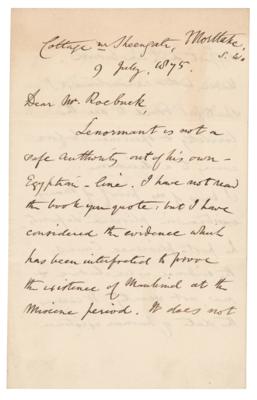 Cottage nr Sheengate, Mortlake,
S.W.
9 July, 1875.
Dear Mr. Roebuck,
Lenormant is not a
safe authority out of his own –
Egyptian – line. I have not read
the book you quote: but I have
considered the evidence which
has been interpreted to prove
the existence of Mankind at the
Miocene period. It does not